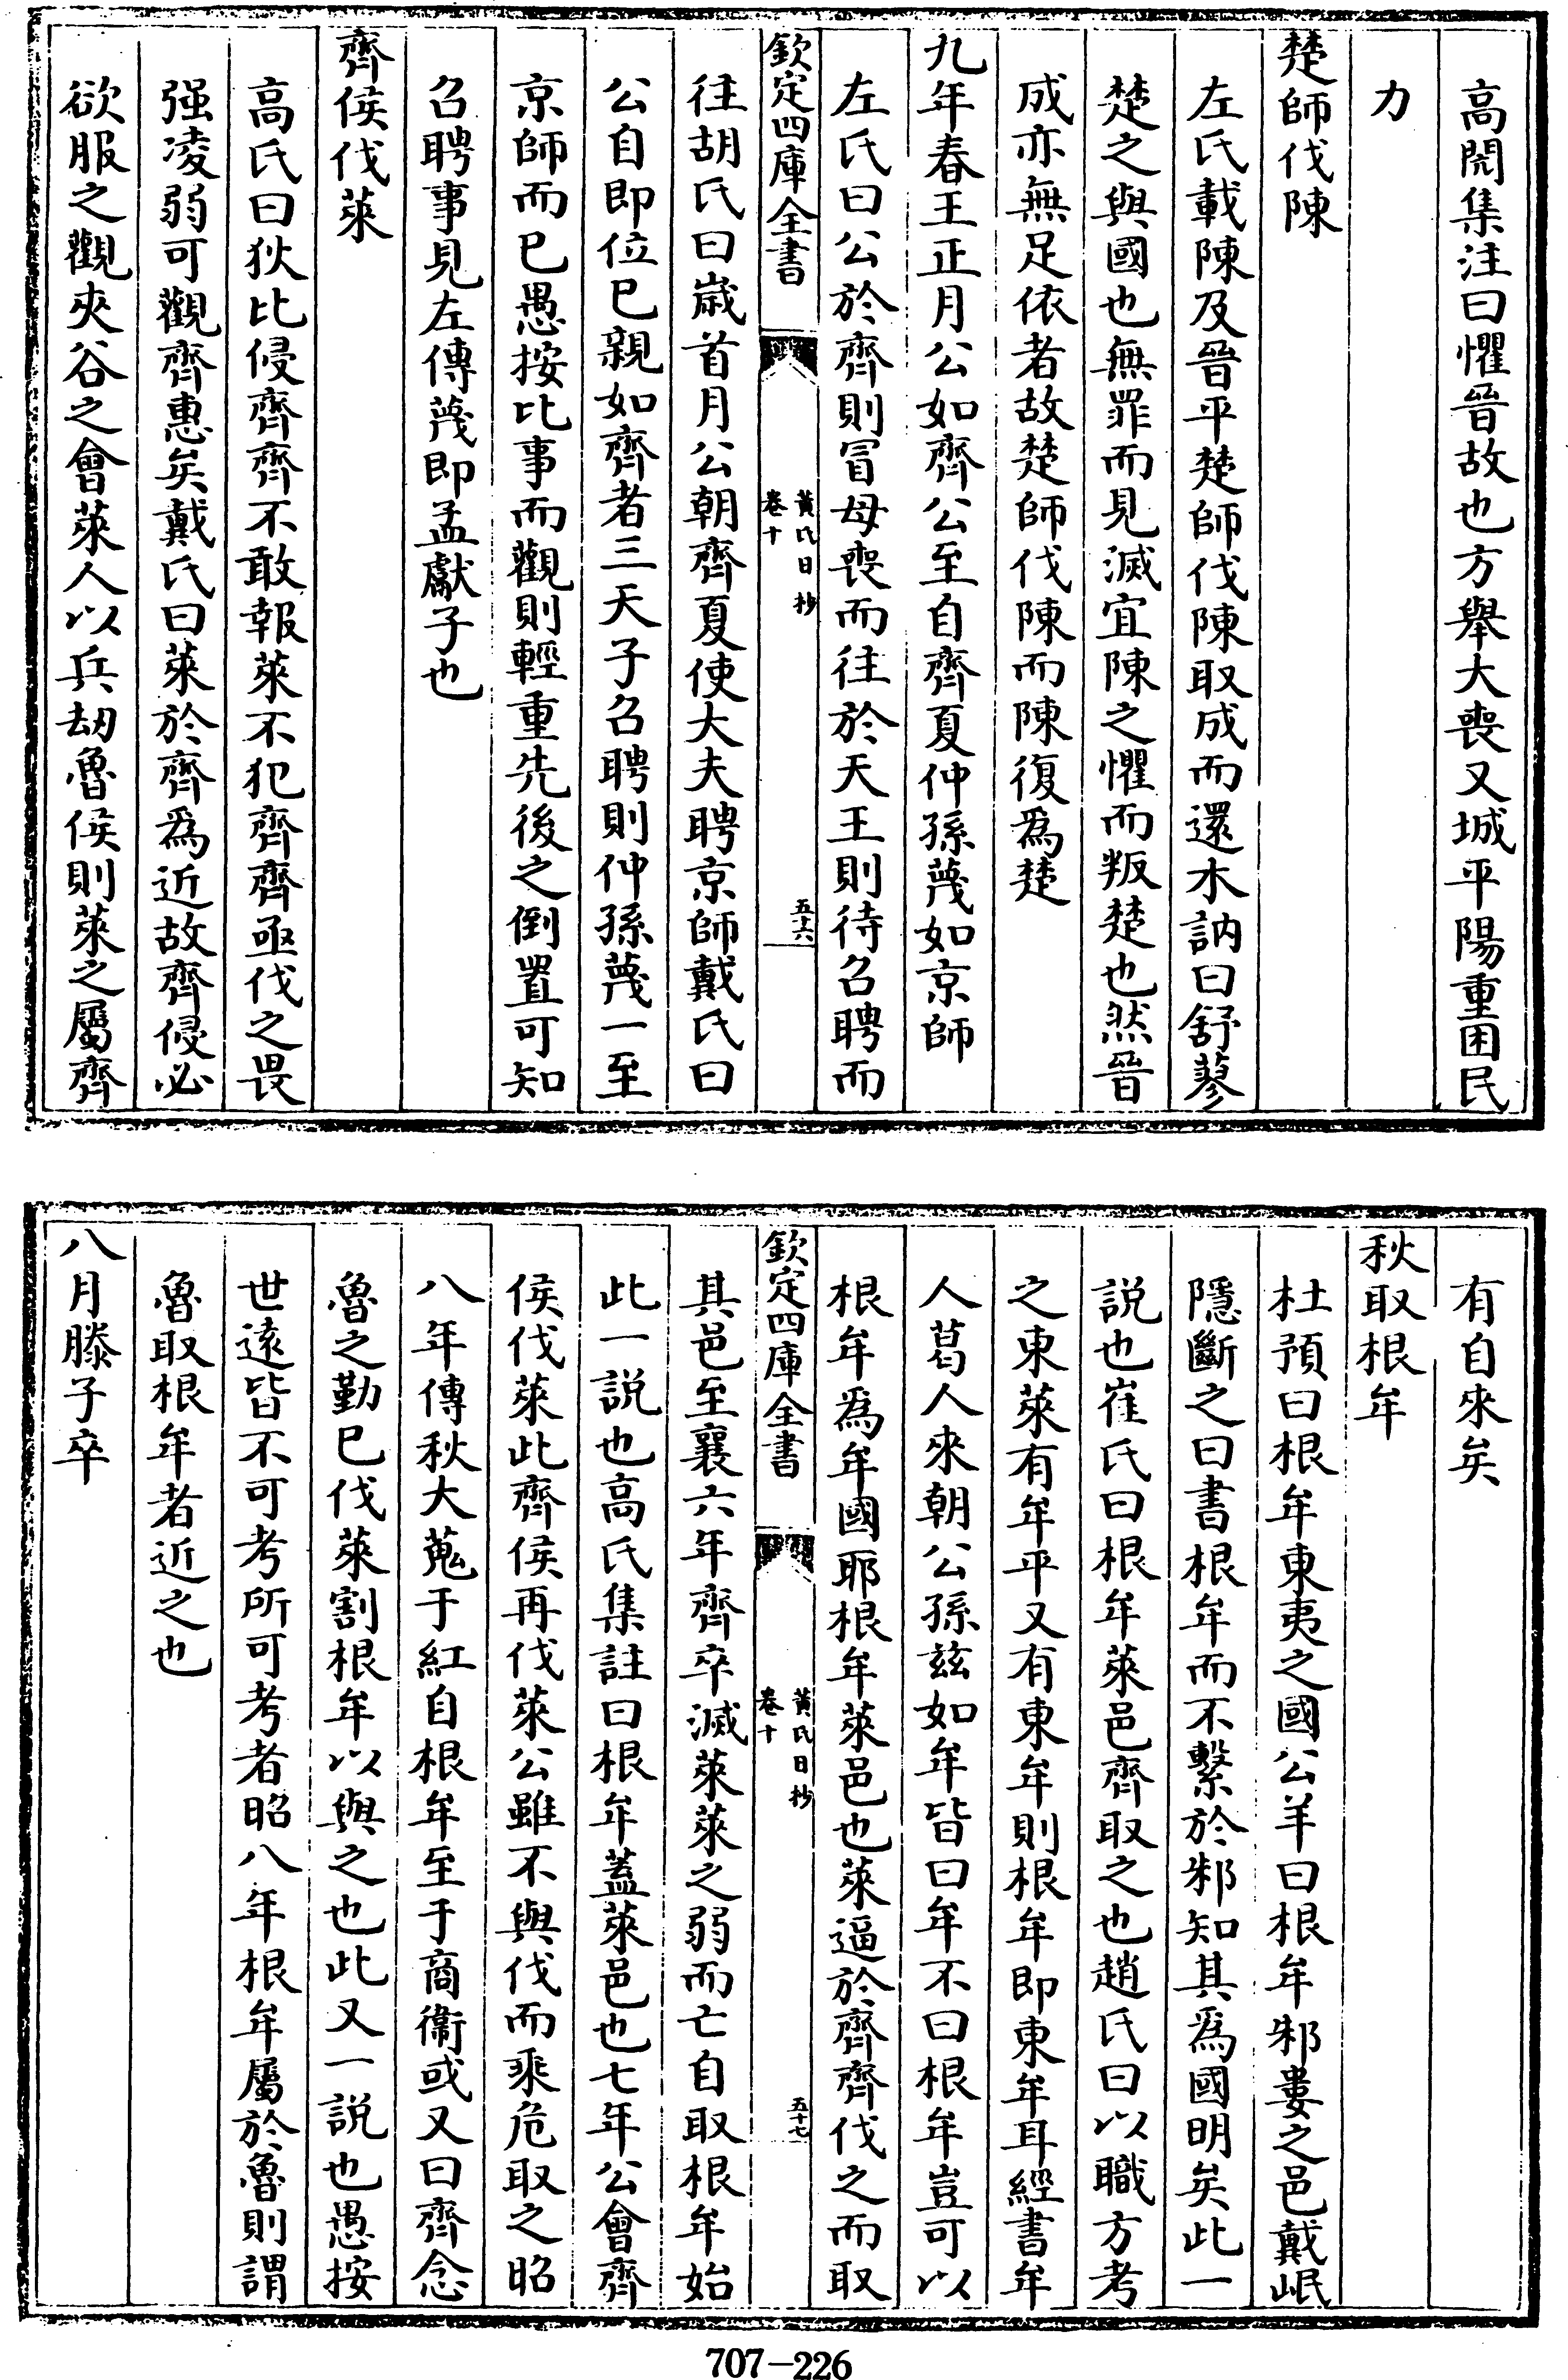 高閌集注曰懼晉故也方舉大喪又城平陽重困民
力
楚師伐陳
左氏載陳及晉平楚師伐陳取成而還木訥曰舒蓼
楚之與國也無罪而見滅宜陳之懼而叛楚也然晉
成亦無足依者故楚師伐陳而陳復爲楚
九年春王正月公如齊公至自齊夏仲孫蔑如京師
左氏曰公於齊則冒母喪而往於天王則待召聘而
欽定四庫全書
黃氏日抄
卷十
五十六
往胡氏曰歲首月公朝齊夏使大夫聘京師戴氏曰
公自即位已親如齊者三天子召聘則仲孫蔑一至
京師而已愚按比事而觀則輕重先後之倒置可知
召聘事見左傳蔑即孟獻子也
齊侯伐萊
高氏曰狄比侵齊齊不敢報萊不犯齊齊亟伐之畏
强凌弱可觀齊惠矣戴氏曰萊於齊爲近故齊侵必
欲服之觀夾谷之會萊人以兵刼魯侯則萊之屬齊
有自來矣
秋取根牟
杜預曰根牟東夷之國公羊曰根牟邾婁之邑戴岷
隱斷之曰書根牟而不繫於邾知其爲國明矣此一
說也崔氏曰根牟萊邑齊取之也趙氏曰以職方考
之東萊有牟平又有東牟則根牟即東牟耳經書牟
人葛人來朝公孫兹如牟皆曰牟不曰根牟豈可以
根牟爲牟國耶根牟萊邑也萊逼於齊齊伐之而取
欽定四庫全書
黃氏日抄
卷十
五十七
其邑至襄六年齊卒滅萊萊之弱而亡自取根牟始
此一說也高氏集註曰根牟蓋萊邑也七年公會齊
侯伐萊此齊侯再伐萊公雖不與伐而乘危取之昭
八年傳秋大蒐于紅自根牟至于商衞或又曰齊念
魯之勤已伐萊割根牟以與之也此又一說也愚按
世遠皆不可考所可考者昭八年根牟屬於魯則謂
魯取根牟者近之也
八月滕子卒
707-226